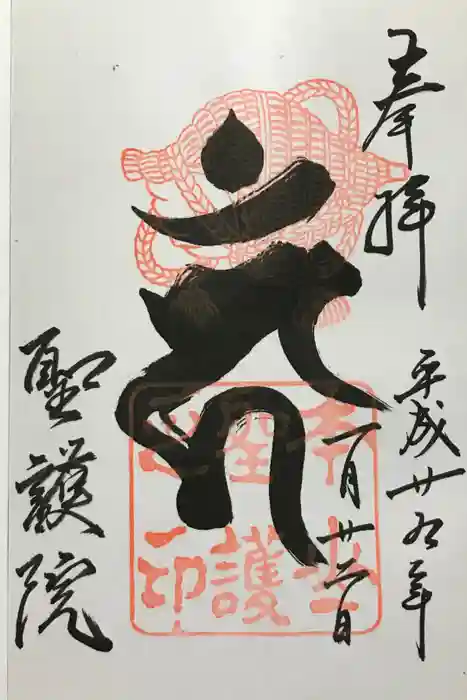 奉拝
平成廿九年
一月廿二日
聖護
之印
聖護院